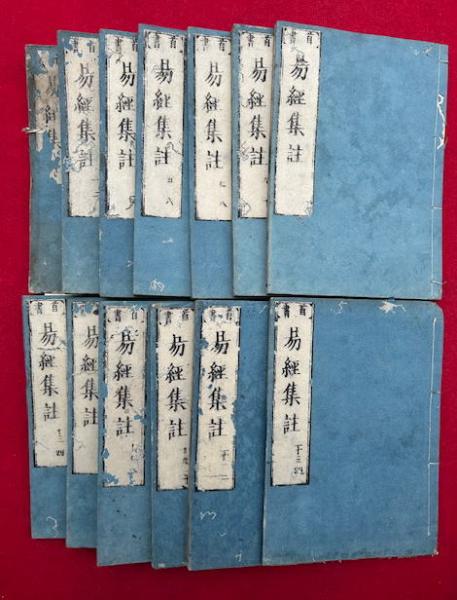 易經集
首書
易經集註
首書
易經集註
首書
易經集註
五六
首書
易經集註
七八
首書
易經集註
首書
易經集註
首書
易經集註
首書
易經集註
首書
易經集註
首書
易經集註
首書
易經集註
首書
易經集註
十三四